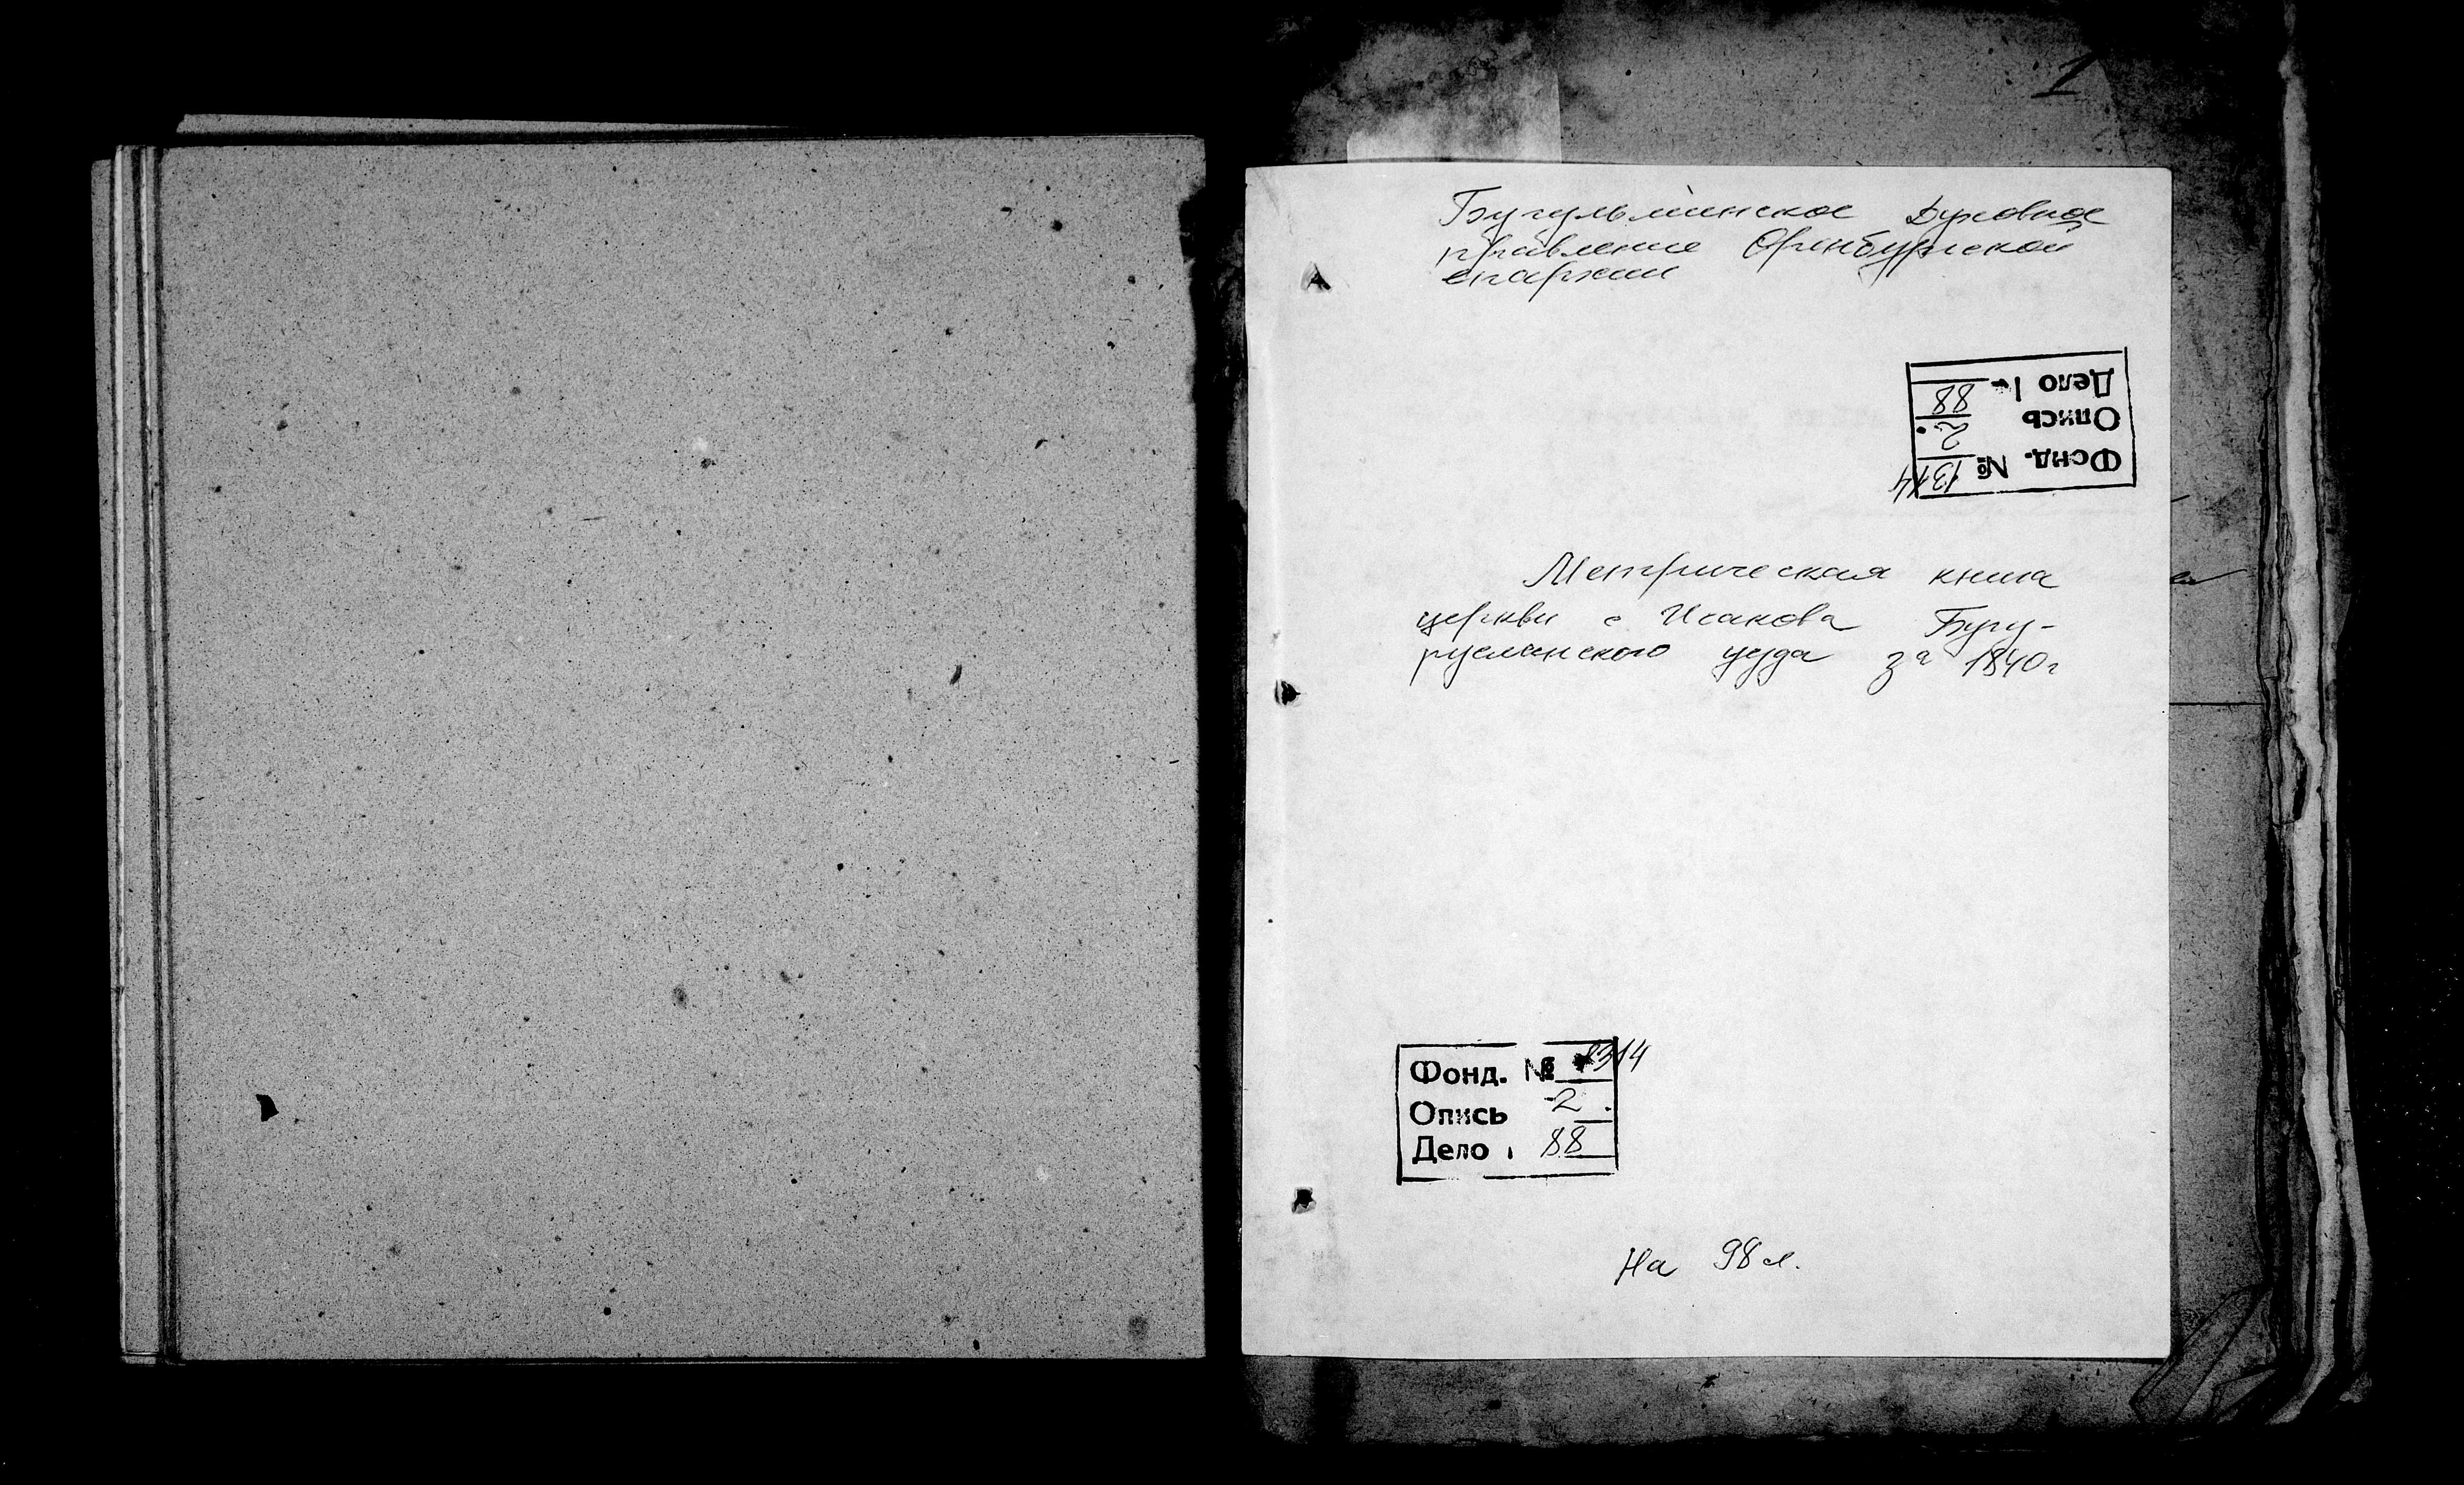 1
Бугульминское Духовное
правление Оренбургской
епархии
Фонд. № 1314
Опись 2
Дело 88
Метрическая книга
церкви с Исакова Бугу-
русланского уезда за 1840 г
Фонд. № 1314
Опись 2
Дело 88
На 98 л.